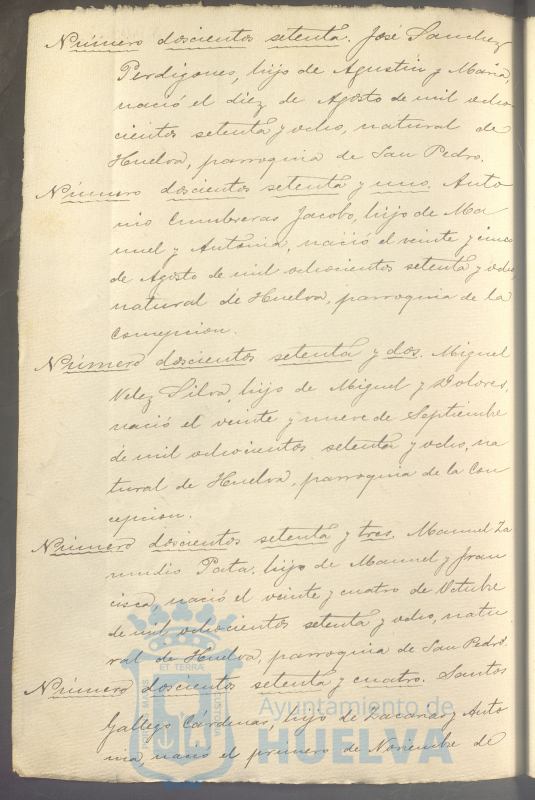 Número doscientos setenta. José Sanchez
Perdigones, hijo de Agustin y Maria,
nació el diez de Agosto de mil ocho-
cientos setenta y ocho, natural de
Huelva, parroquia de San Pedro.
Número doscientos setenta y uno. Anto
nio Cumbreras Jacobo, hijo de Ma
nuel y Antonia, nació el veinte y cinco
de Agosto de mil ochocientos setenta y ocho
natural de Huelva, parroquia de la
Concepcion.
Número doscientos setenta y dos. Miguel
Velez Silva, hijo de Miguel y Dolores,
nació el veinte y nueve de Septiembre
de mil ochocientos setenta y ocho, na
tural de Huelva, parroquia de la Con
cepcion.
Número doscientos setenta y tres. Manuel Za
mudio Pata, hijo de Manuel y Fran
cisca, nació el veinte y cuatro de Octubre
de mil ochocientos setenta y ocho, natu
ral de Huelva, parroquia de San Pedro.
Número doscientos setenta y cuatro. Santos
Gallego Cárdenas, hijo de Zacarias y Anto
nia, nació el primero de Noviembre de
ET TERRA
Ayuntamiento de
HUELVA